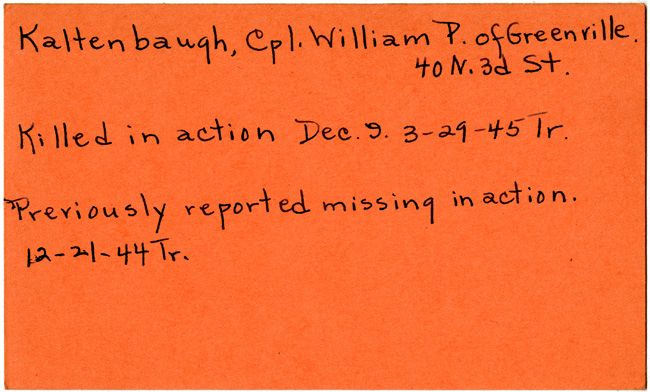 Kaltenbaugh, Cpl. William P. of Greenville.
40 N. 3d St.
Killed in action Dec. 9. 3-29-45 Tr.
Previously reported missing in action.
12-21-44 Tr.